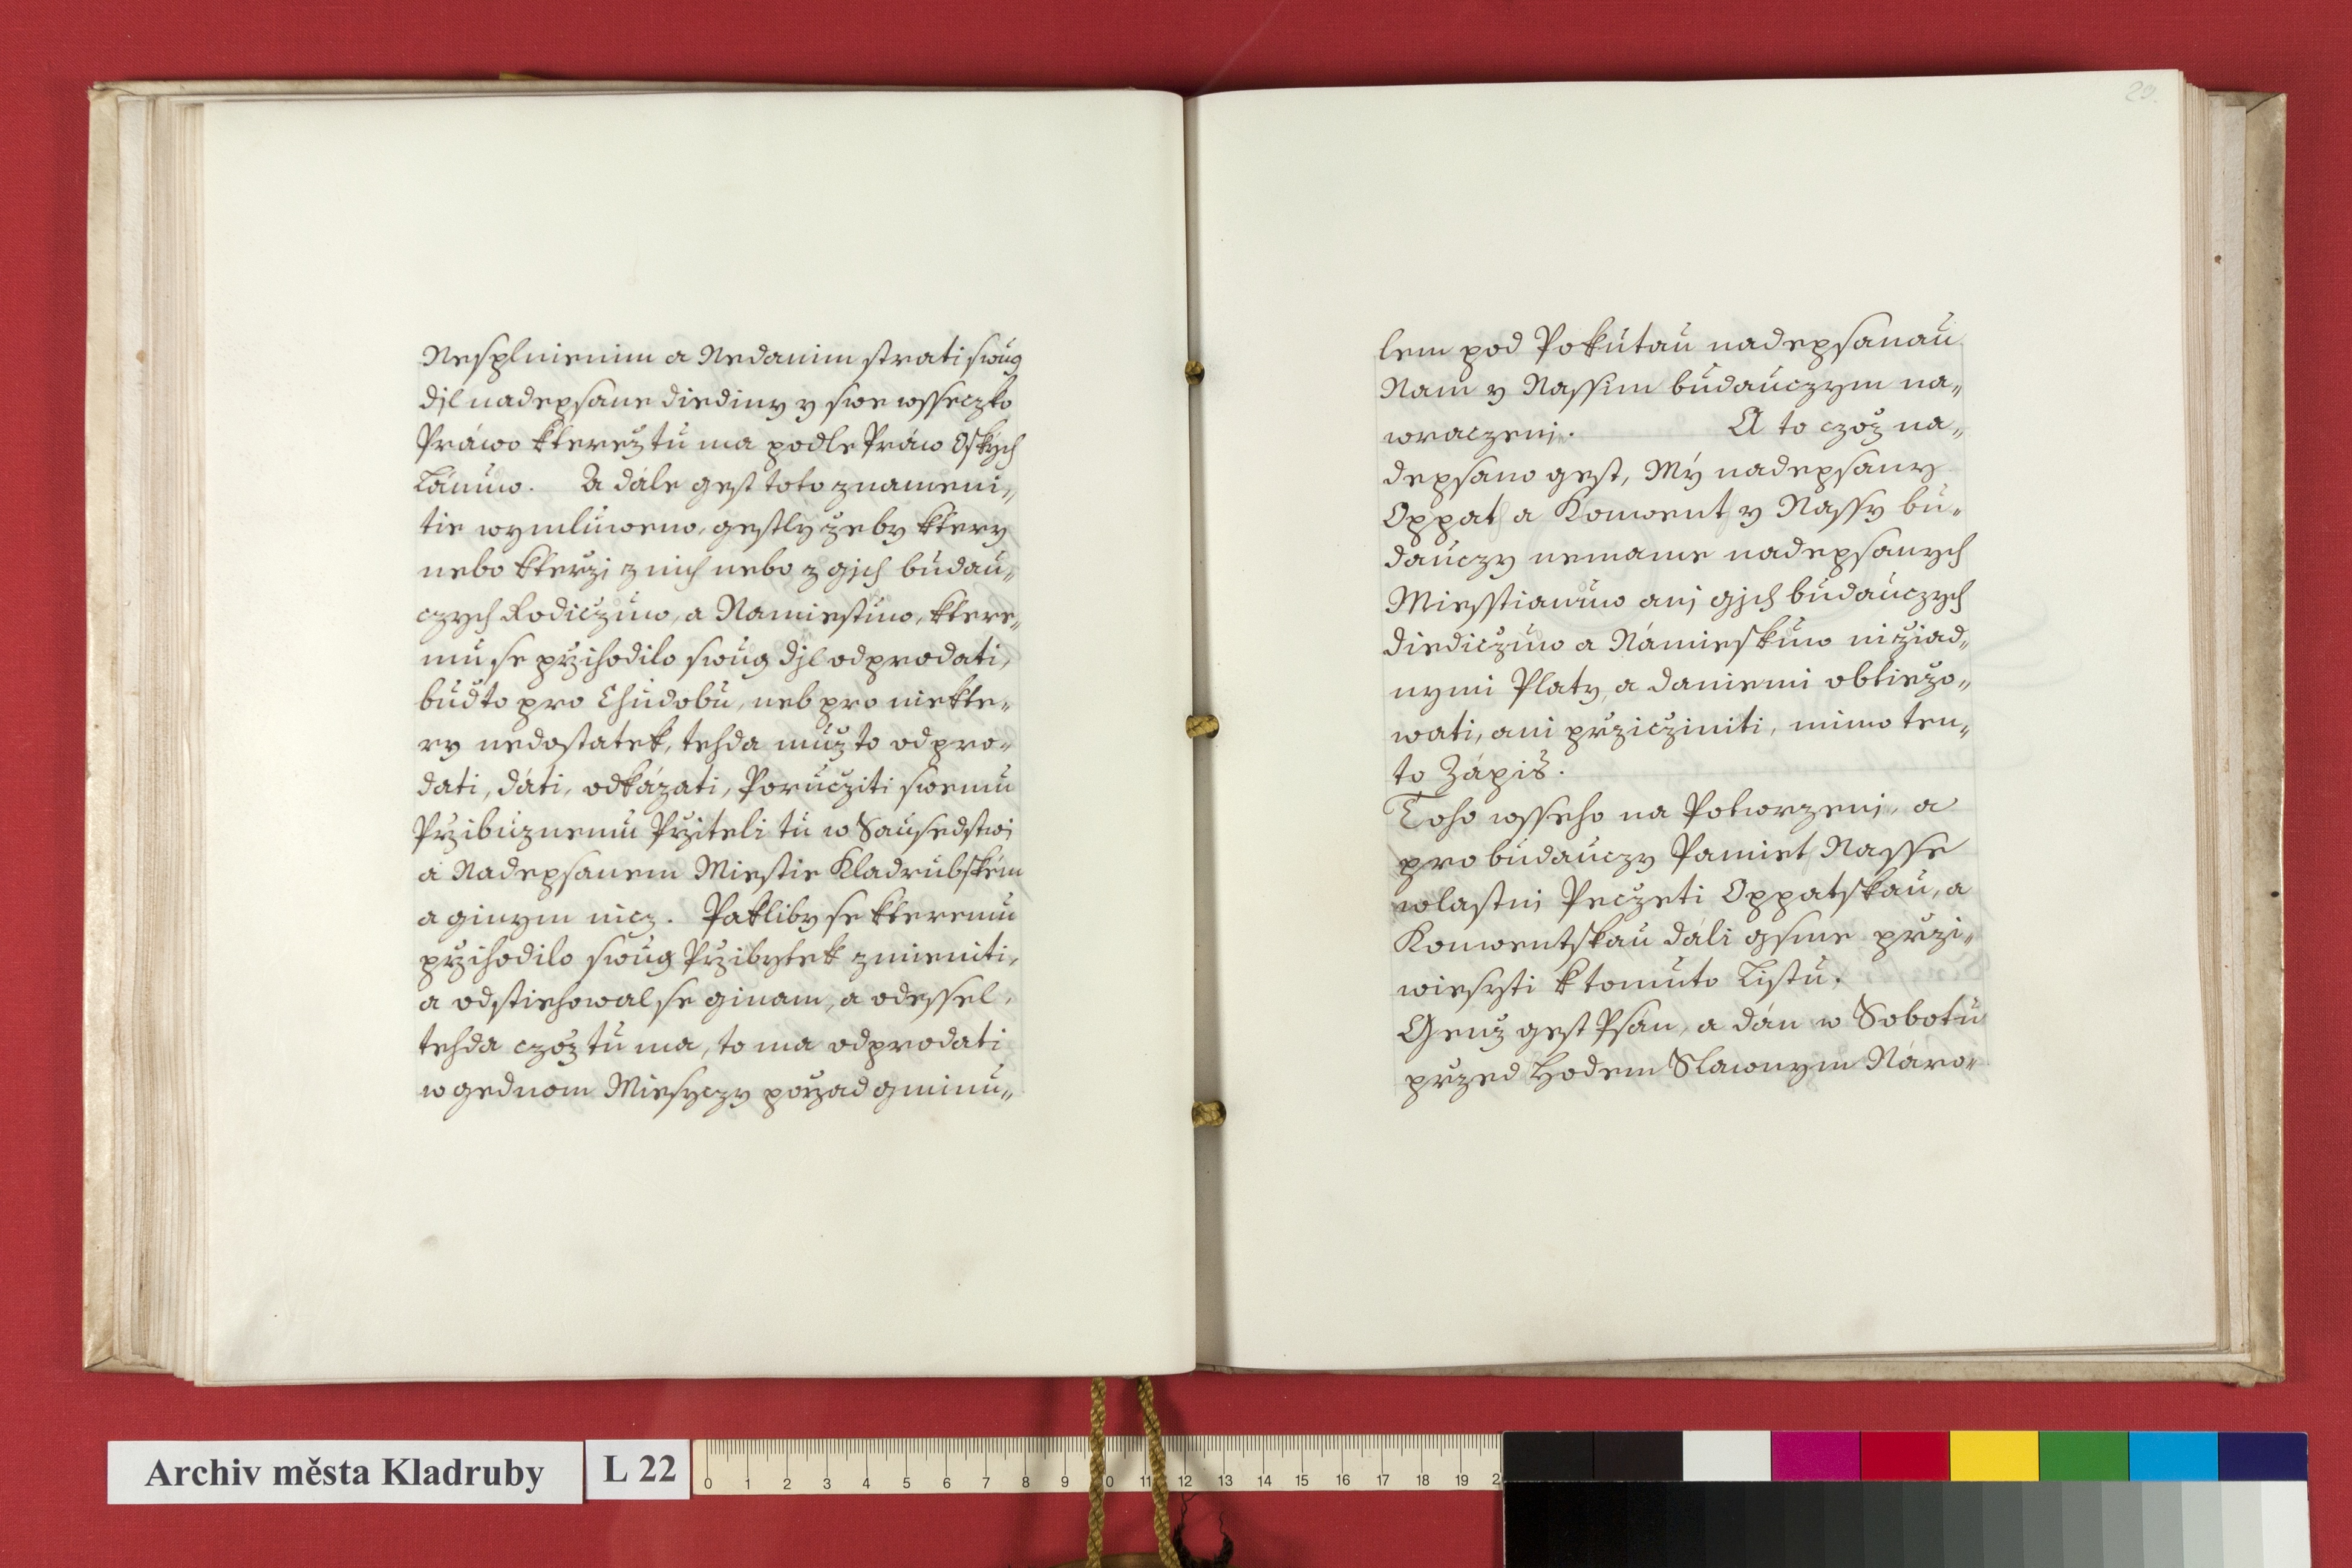 Nesplnienim a Nedanim strati swůg
djl nadepsane diediny y swe wsseczko
Práwo kterež tu ma podle Práw Oských
Lánuw. A dále gest toto znameni„
tie wymluweno, gestly žeby ktery
nebo kterži z nich nebo z gich budau„
czych Rodiczuw, a Namiestuw, ktere„
mu se pržihodilo swůg djl odprodati,
buďto pro Chudobu, neb pro niekte„
ry nedostatek, tehda muž to odpro„
dati, dáti, odkázati, Porucžiti swemu
Pržibuznemu Pržiteli tu w Sausedstwi
a Nadepsanem Miestie Kladrubském
a ginym nicz. Pakliby se kteremu
pržihodilo swůg Pržibytek zmieniti,
a odstiehowal se ginam, a odessel,
tehda czož tu ma, to ma odprodati
w gednom Miesyczy pořzad gminu„
23.
lem pod Pokutau nadepsanau
Nam y Nassim budauczym na„
wraczenj. A to czož na„
depsano gest, Mý nadepsany
Oppat a Konwent y Nassy bu„
dauczy nemame nadepsanych
Miesstianuw anj gjch budauczych
diediczuw a Námieskuw nižiad„
nymi Platy, a daniemi obtiežo„
wati, ani pržicziniti, mimo ten„
to Zápis.
Toho wsseho na Potwrzenj, a
pro budauczy Pamiet Nasse
wlastni Peczeti Oppatskau, a
Konwentskau dáli gsme prži„
wiesyti k tomuto Listu.
Genž gest Psán, a dán w Sobotu
pržed Hodem Slawnym Náro„
Archiv města Kladruby
L 22
0 1 2 3 4 5 6 7 8 9 10 11 12 13 14 15 16 17 18 19 2